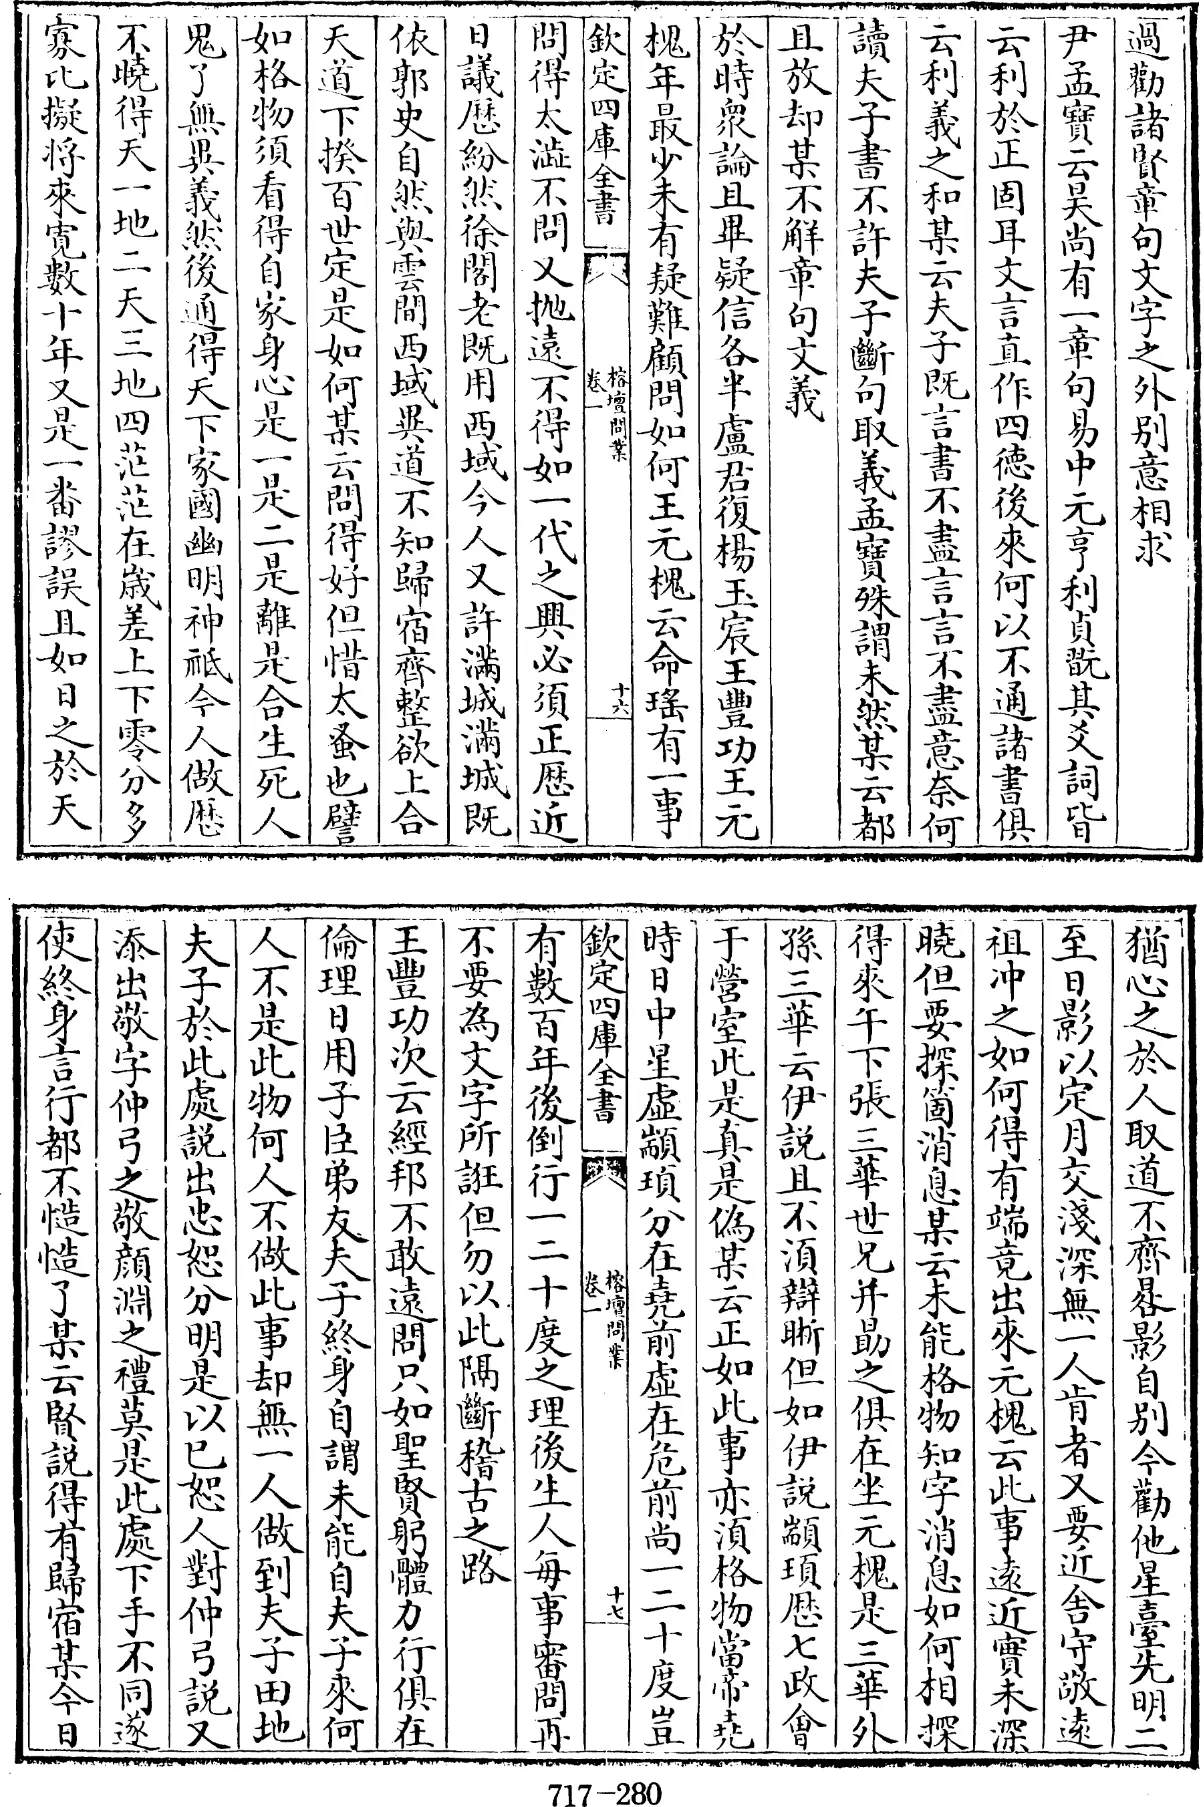 過勸諸賢章句文字之外别意相求
尹孟寶云昊尚有一章句易中元亨利貞旣其爻詞皆
云利於正固耳文言直作四徳後來何以不通諸書俱
云利義之和某云夫子既言書不盡言言不盡意奈何
讀夫子書不許夫子斷句取義孟寶殊謂未然某云都
且放却某不解章句文義
於時衆論且畢疑信各半盧君復楊玉宸王豐功王元
槐年最少未有疑難顧問如何王元槐云命瑤有一事
欽定四庫全書
榕壇問業
卷一
十六
問得太澁不問又抛遠不得如一代之興必須正厯近
日議厯紛然徐閣老既用西域今人又許滿城滿城既
依郭史自然與雲間西域異道不知歸宿齊整欲上合
天道下揆百世定是如何某云問得好但惜太蚤也譬
如格物須看得自家身心是一是二是離是合生死人
鬼了無異義然後通得天下家國幽明神祗今人做厯
不曉得天一地二天三地四茫茫在嵗差上下零分多
寡比擬将來寛數十年又是一番謬誤且如日之於天
猶心之於人取道不齊晷影自别今勸他星臺先明二
至日影以定月交淺深無一人肯者又要近舍守敬遠
祖冲之如何得有端竟出來元槐云此事逺近實未深
曉但要探箇消息某云未能格物知字消息如何相探
得來午下張三華世兄并勗之俱在坐元槐是三華外
孫三華云伊説且不湏辯晣但如伊説顓頊厯七政會
于營室此是真是偽某云正如此事亦湏格物當帝堯
時日中星虚顓頊分在堯前虚在危前尚一二十度豈
欽定四庫全書
榕壇問業
卷一
十七
有數百年後倒行一二十度之理後生人每事審問再
不要為文字所誑但勿以此隔斷稽古之路
王豐功次云經邦不敢逺問只如聖賢躬體力行俱在
倫理日用子臣弟友夫子終身自謂未能自夫子來何
人不是此物何人不做此事却無一人做到夫子田地
夫子於此處説出忠恕分明是以已恕人對仲弓説又
添出敬字仲弓之敬顔淵之禮莫是此處下手不同遂
使終身言行都不慥慥了某云賢説得有歸宿某今日
717-280